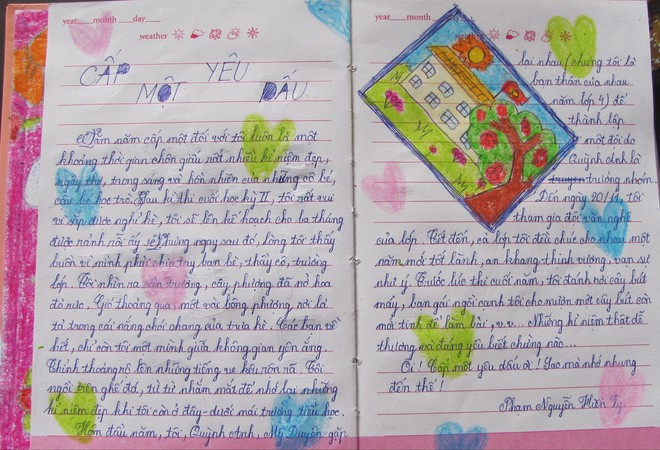 year month day
weather
CẤP MỘT YÊU DẤU
Năm năm cấp một đối với tôi luôn là một
khoảng thời gian chôn giấu rất nhiều kỉ niệm đẹp,
ngây thơ, trong sáng và hồn nhiên của những cô bé,
cậu bé học trò. Sau kì thi cuối học kỳ II, tôi rất vui
vì sắp được nghỉ hè, tôi sẽ lên kế hoạch cho ba tháng
được rảnh rỗi ấy. Nhưng ngay sau đó, lòng tôi thấy
buồn vì mình phải chia tay bạn bè, thầy cô, trường
lớp. Tôi nhìn ra sân trường, cây phượng đã nở hoa
đỏ rực. Gió thoảng qua, một vài bông phượng rơi lả
tả trong cái nắng chói chang của trưa hè. Các bạn về
hết, chỉ còn tôi một mình giữa không gian yên ắng.
Thỉnh thoảng rộ lên những tiếng ve kêu rôm rả. Tôi
ngồi trên ghế đá, từ từ nhắm mắt để nhớ lại những
kỉ niệm đẹp khi tôi còn ở đây - dưới mái trường tiểu học.
Hôm đầu năm, tôi, Quỳnh Anh, Mỹ Duyên gặp
year month day
weather
lại nhau (chúng tôi là
bạn thân của nhau
năm lớp 4) để
thành lập
một đôi do
Quỳnh Anh là
truyen trưởng nhóm.
Đến ngày 20/11 tôi
tham gia đội văn nghệ
của lớp. Tết đến, cả lớp tôi đều chúc cho nhau một
năm mới tốt lành, an khang thịnh vượng, vạn sự
như ý. Trước lúc thi cuối năm, tôi đánh rơi cây bút
máy, bạn gái ngồi cạnh tôi cho mượn một cây bút còn
mới tinh để làm bài, v.v... Những kỉ niệm thật dễ
thương và đáng yêu biết chừng nào...
Ôi! Cấp một yêu dấu ơi! Sao mà nhớ nhung
đến thế!
Phạm Nguyễn Hiền Ty.